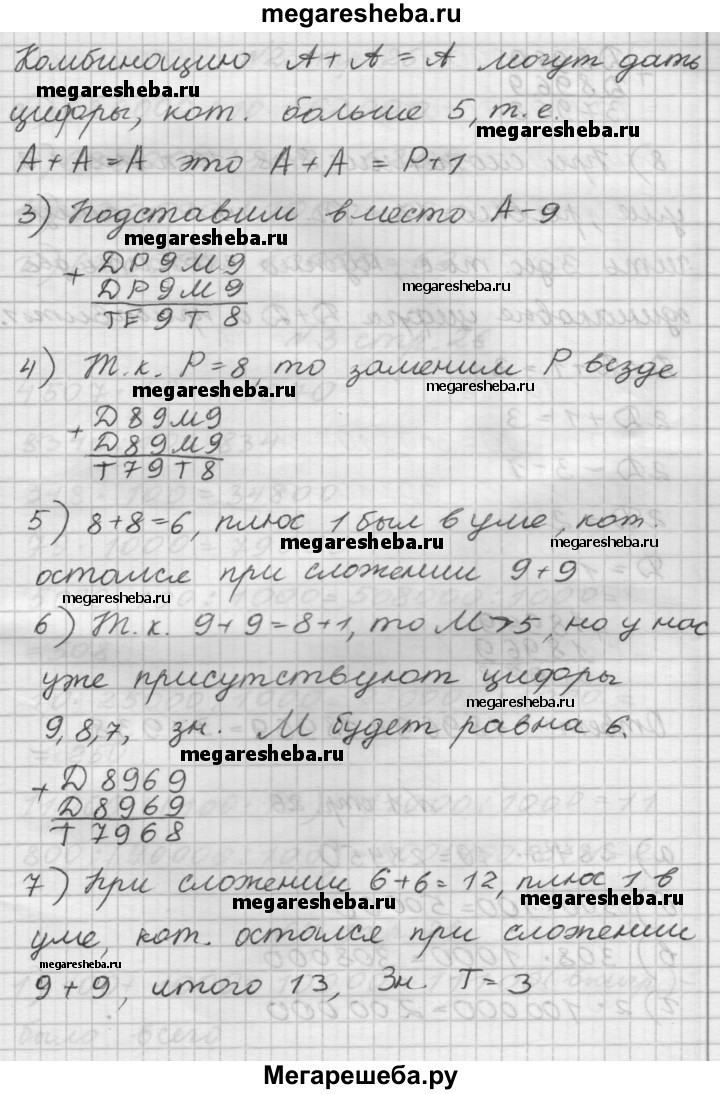 megaresheba.ru
Комбинацию А + А = А могут дать
цифры, кот. больше 5, т. е.
megaresheba.ru
А + А = А это А + А = Р + 1
3) Подставим вместо А - 9
megaresheba.ru
+ ДР9М9
ДР9М9
megaresheba.ru
ТЕ9Т8
4) Т. к. Р = 8, то заменим Р везде
megaresheba.ru
megaresheba.ru
+ Д89М9
Д89М9
Т79Т8
5) 8 + 8 = 6, плюс 1 был в уме, кот.
megaresheba.ru
megaresheba.ru
остался при сложении 9 + 9
megaresheba.ru
6) Т. к. 9 + 9 = 8 + 1, то М > 5, но у нас
уже присутствуют цифры
megaresheba.ru
9, 8, 7, зн. М будет равна 6.
megaresheba.ru
+ Д8969
Д8969
Т7968
7) При сложении 6 + 6 = 12, плюс 1 в
megaresheba.ru
megaresheba.ru
уме, кот. остался при сложении
megaresheba.ru
9 + 9, итого 13, Зн. Т = 3
Мегарешеба.ру